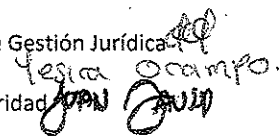 Gestión Jurídica
Yesica Ocampo.
ridad JOAN DAVID